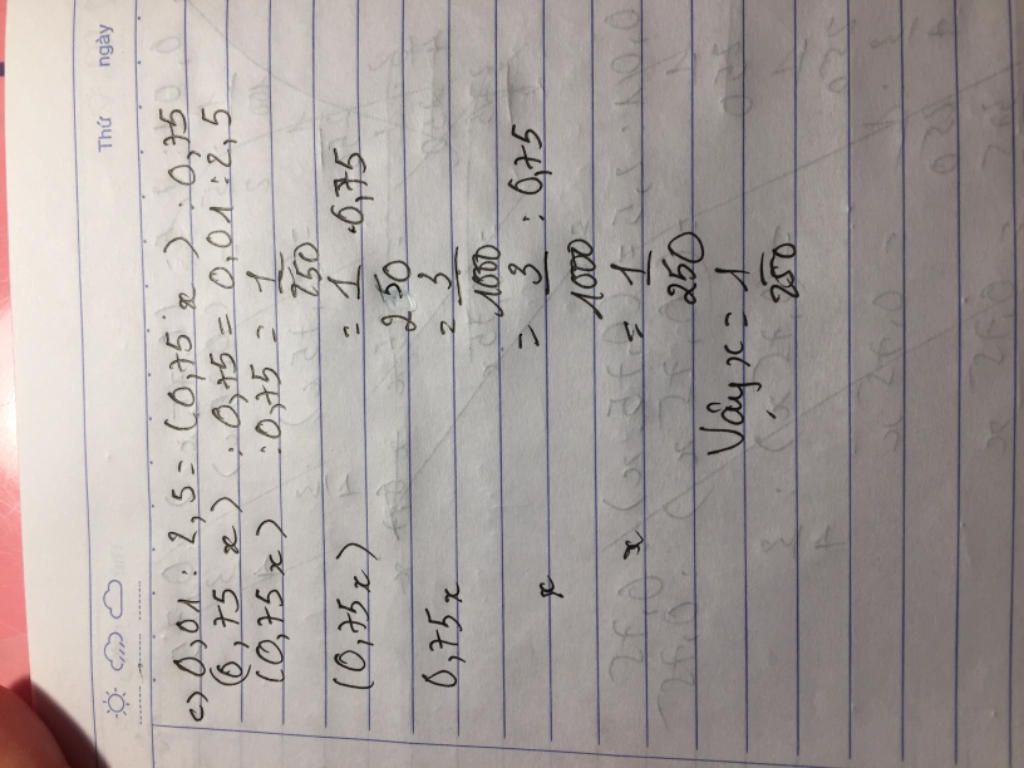 Thứ ngày
c) 0,01 : 2,5 = (0,75 x) : 0,75
(0,75 x) : 0,75 = 0,01 : 2,5
(0,75 x) : 0,75 = 1/250
(0,75 x) = 1/250 . 0,75
0,75 x = 3/1000
x = 3/1000 : 0,75
x = 1/250
Vậy x = 1/250